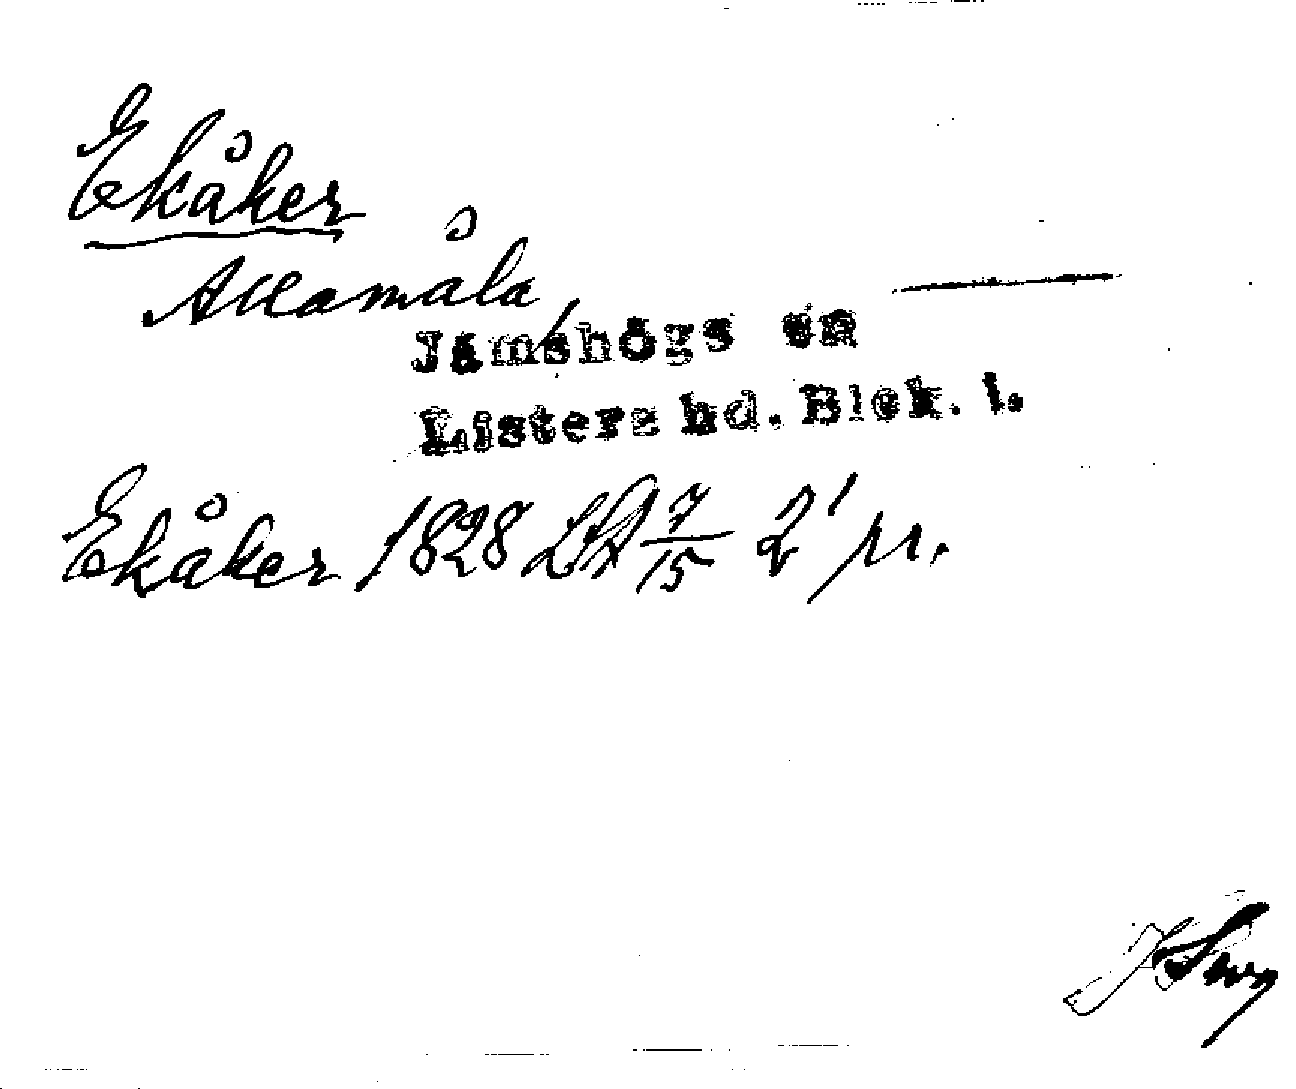 Ekåker
Allamåla,
Jämshögs sn
Listers hd. Blek. l.
Ekåker 1828 LA 7/15 2' µ.